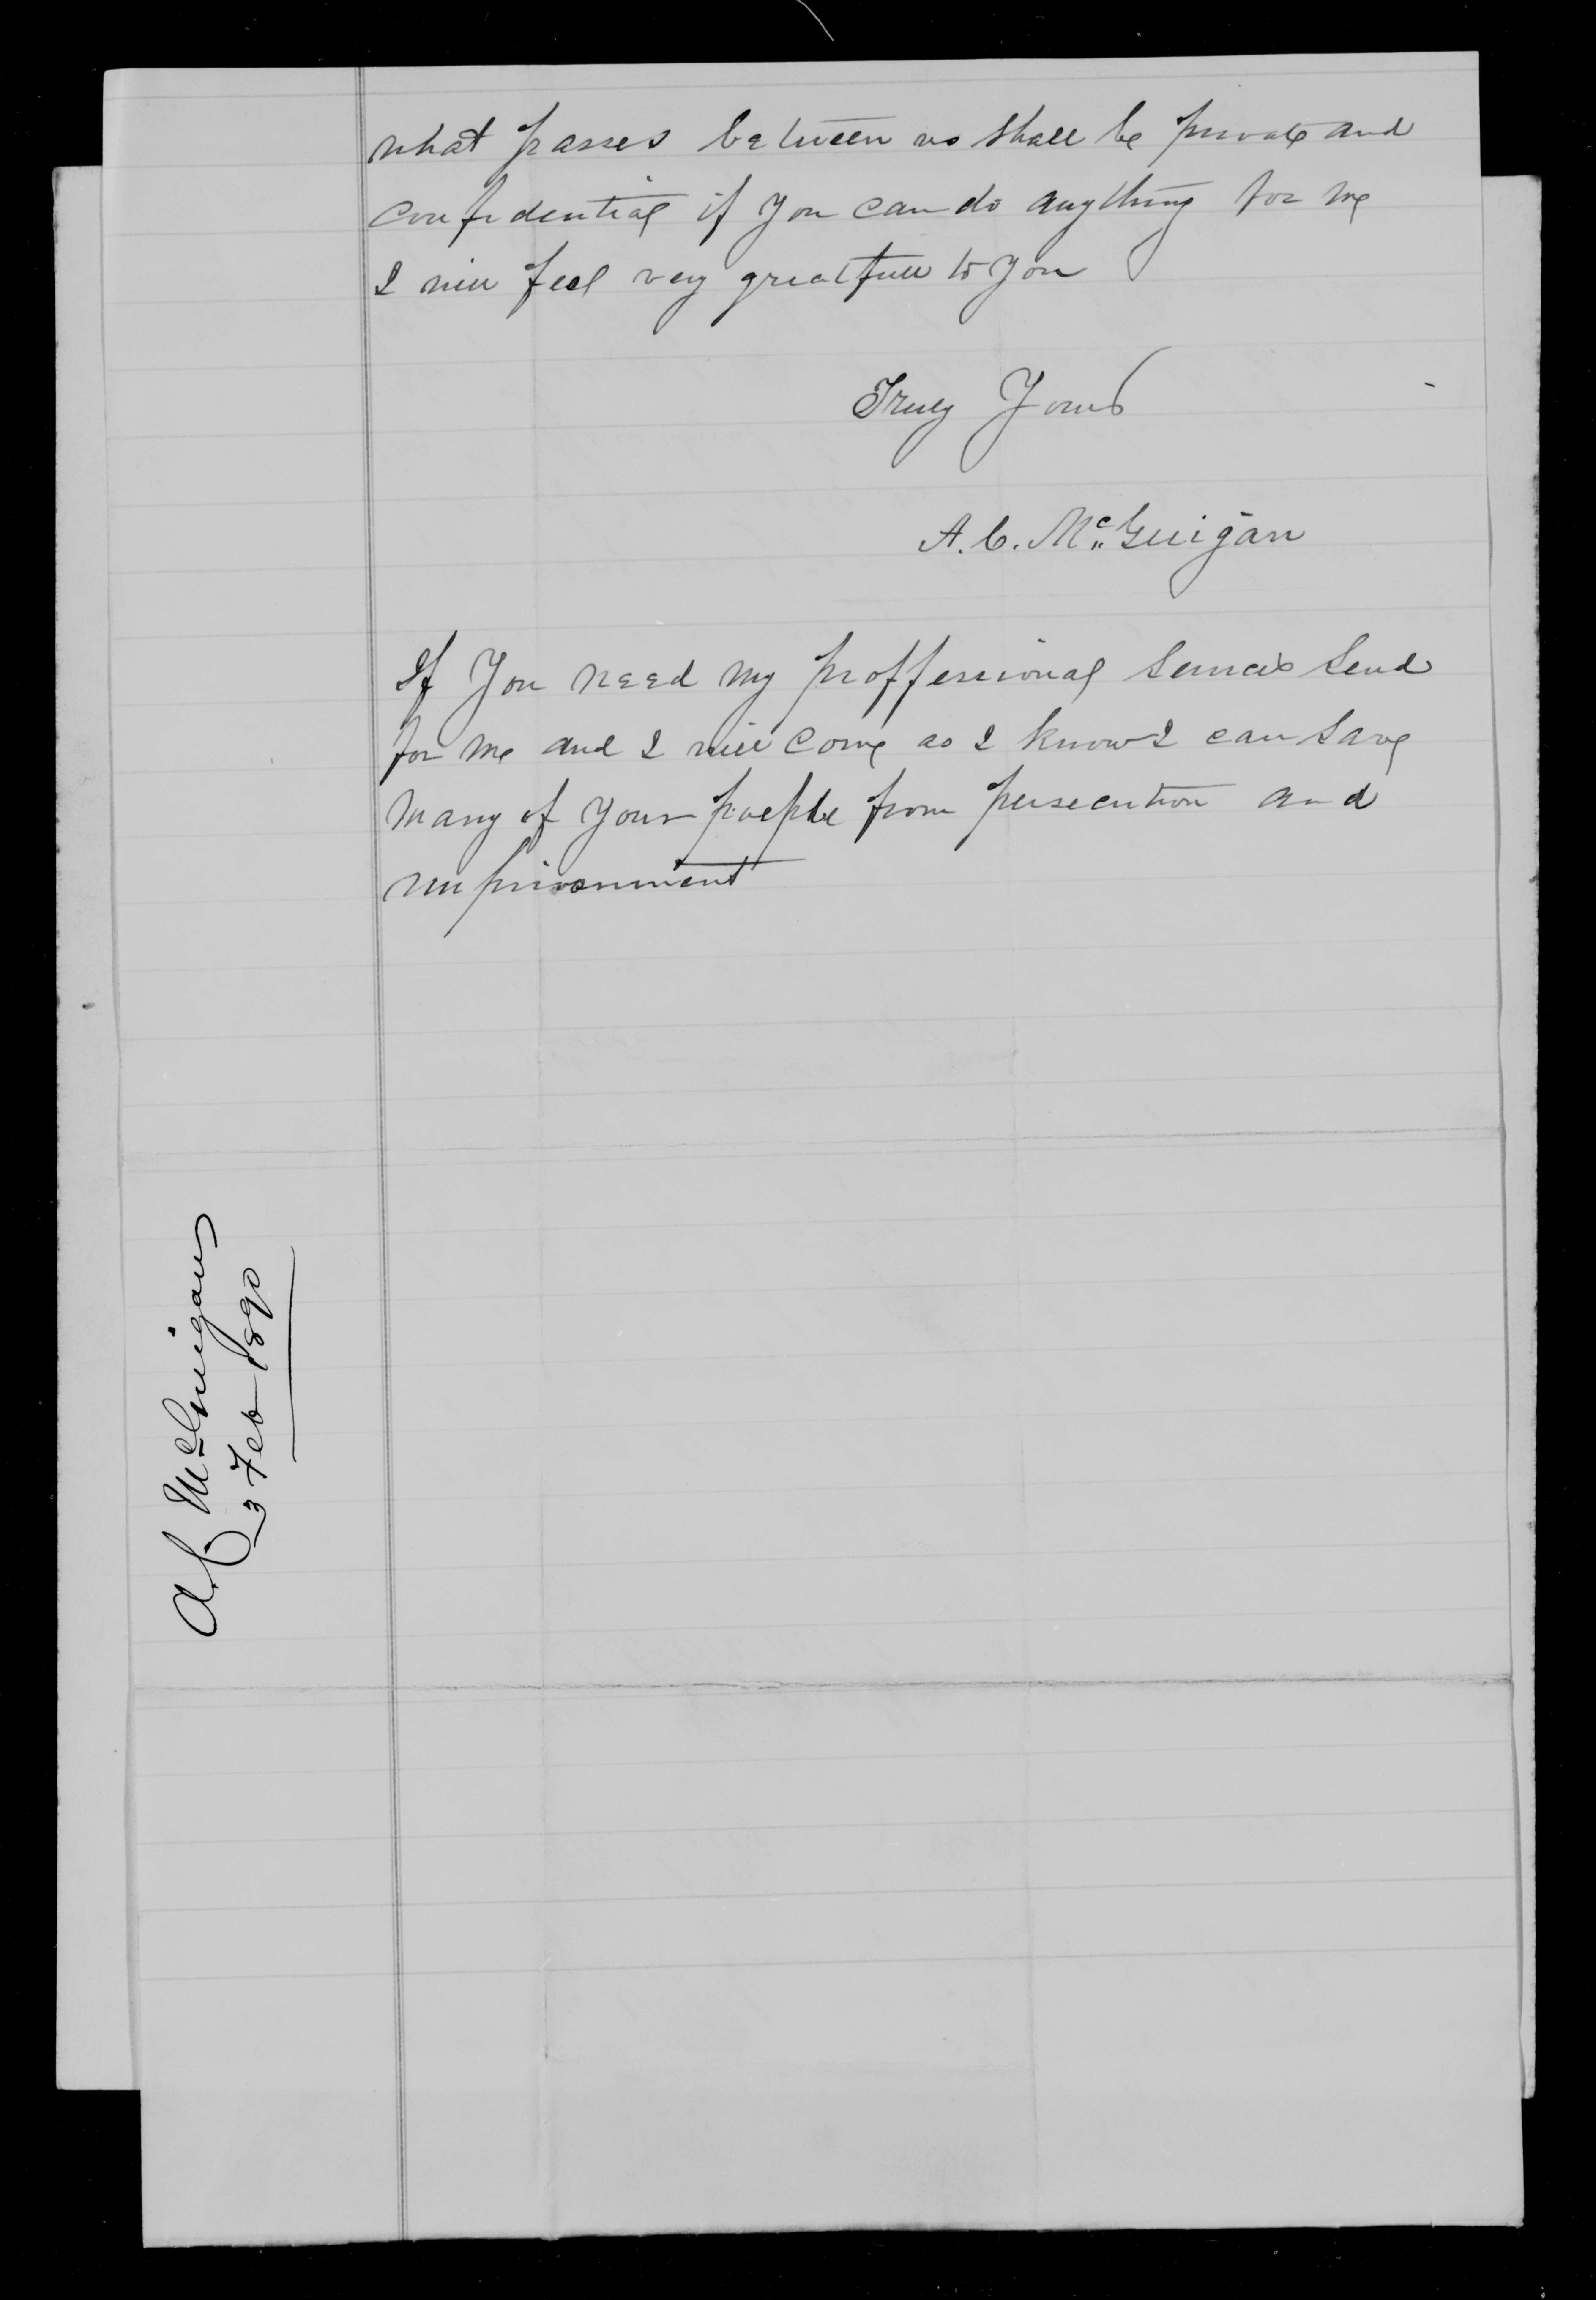 what passes between us shall be private and
confidential if you can do anything for me
I will feel very greatfull to you
Truly Yours
A. C. McGuigan
If You need my proffessional services send
for me and I will come as I know I can save
many of your poeple from persecution and
imprisonment
A C McGuigan
3 Feb 1890